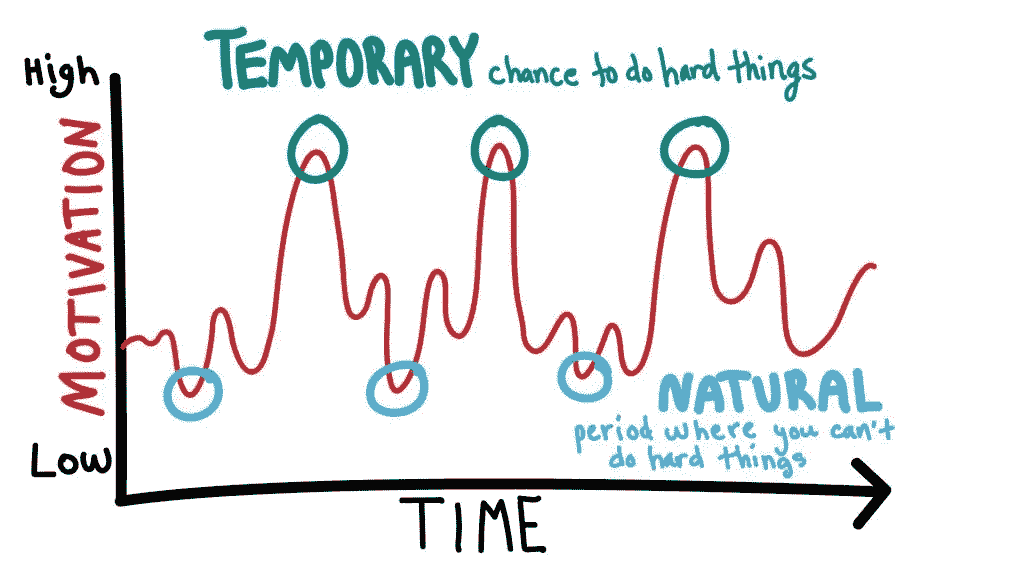 TEMPORARY chance to do hard things
High
MOTIVATION
Low
NATURAL
period where you can't
do hard things
TIME